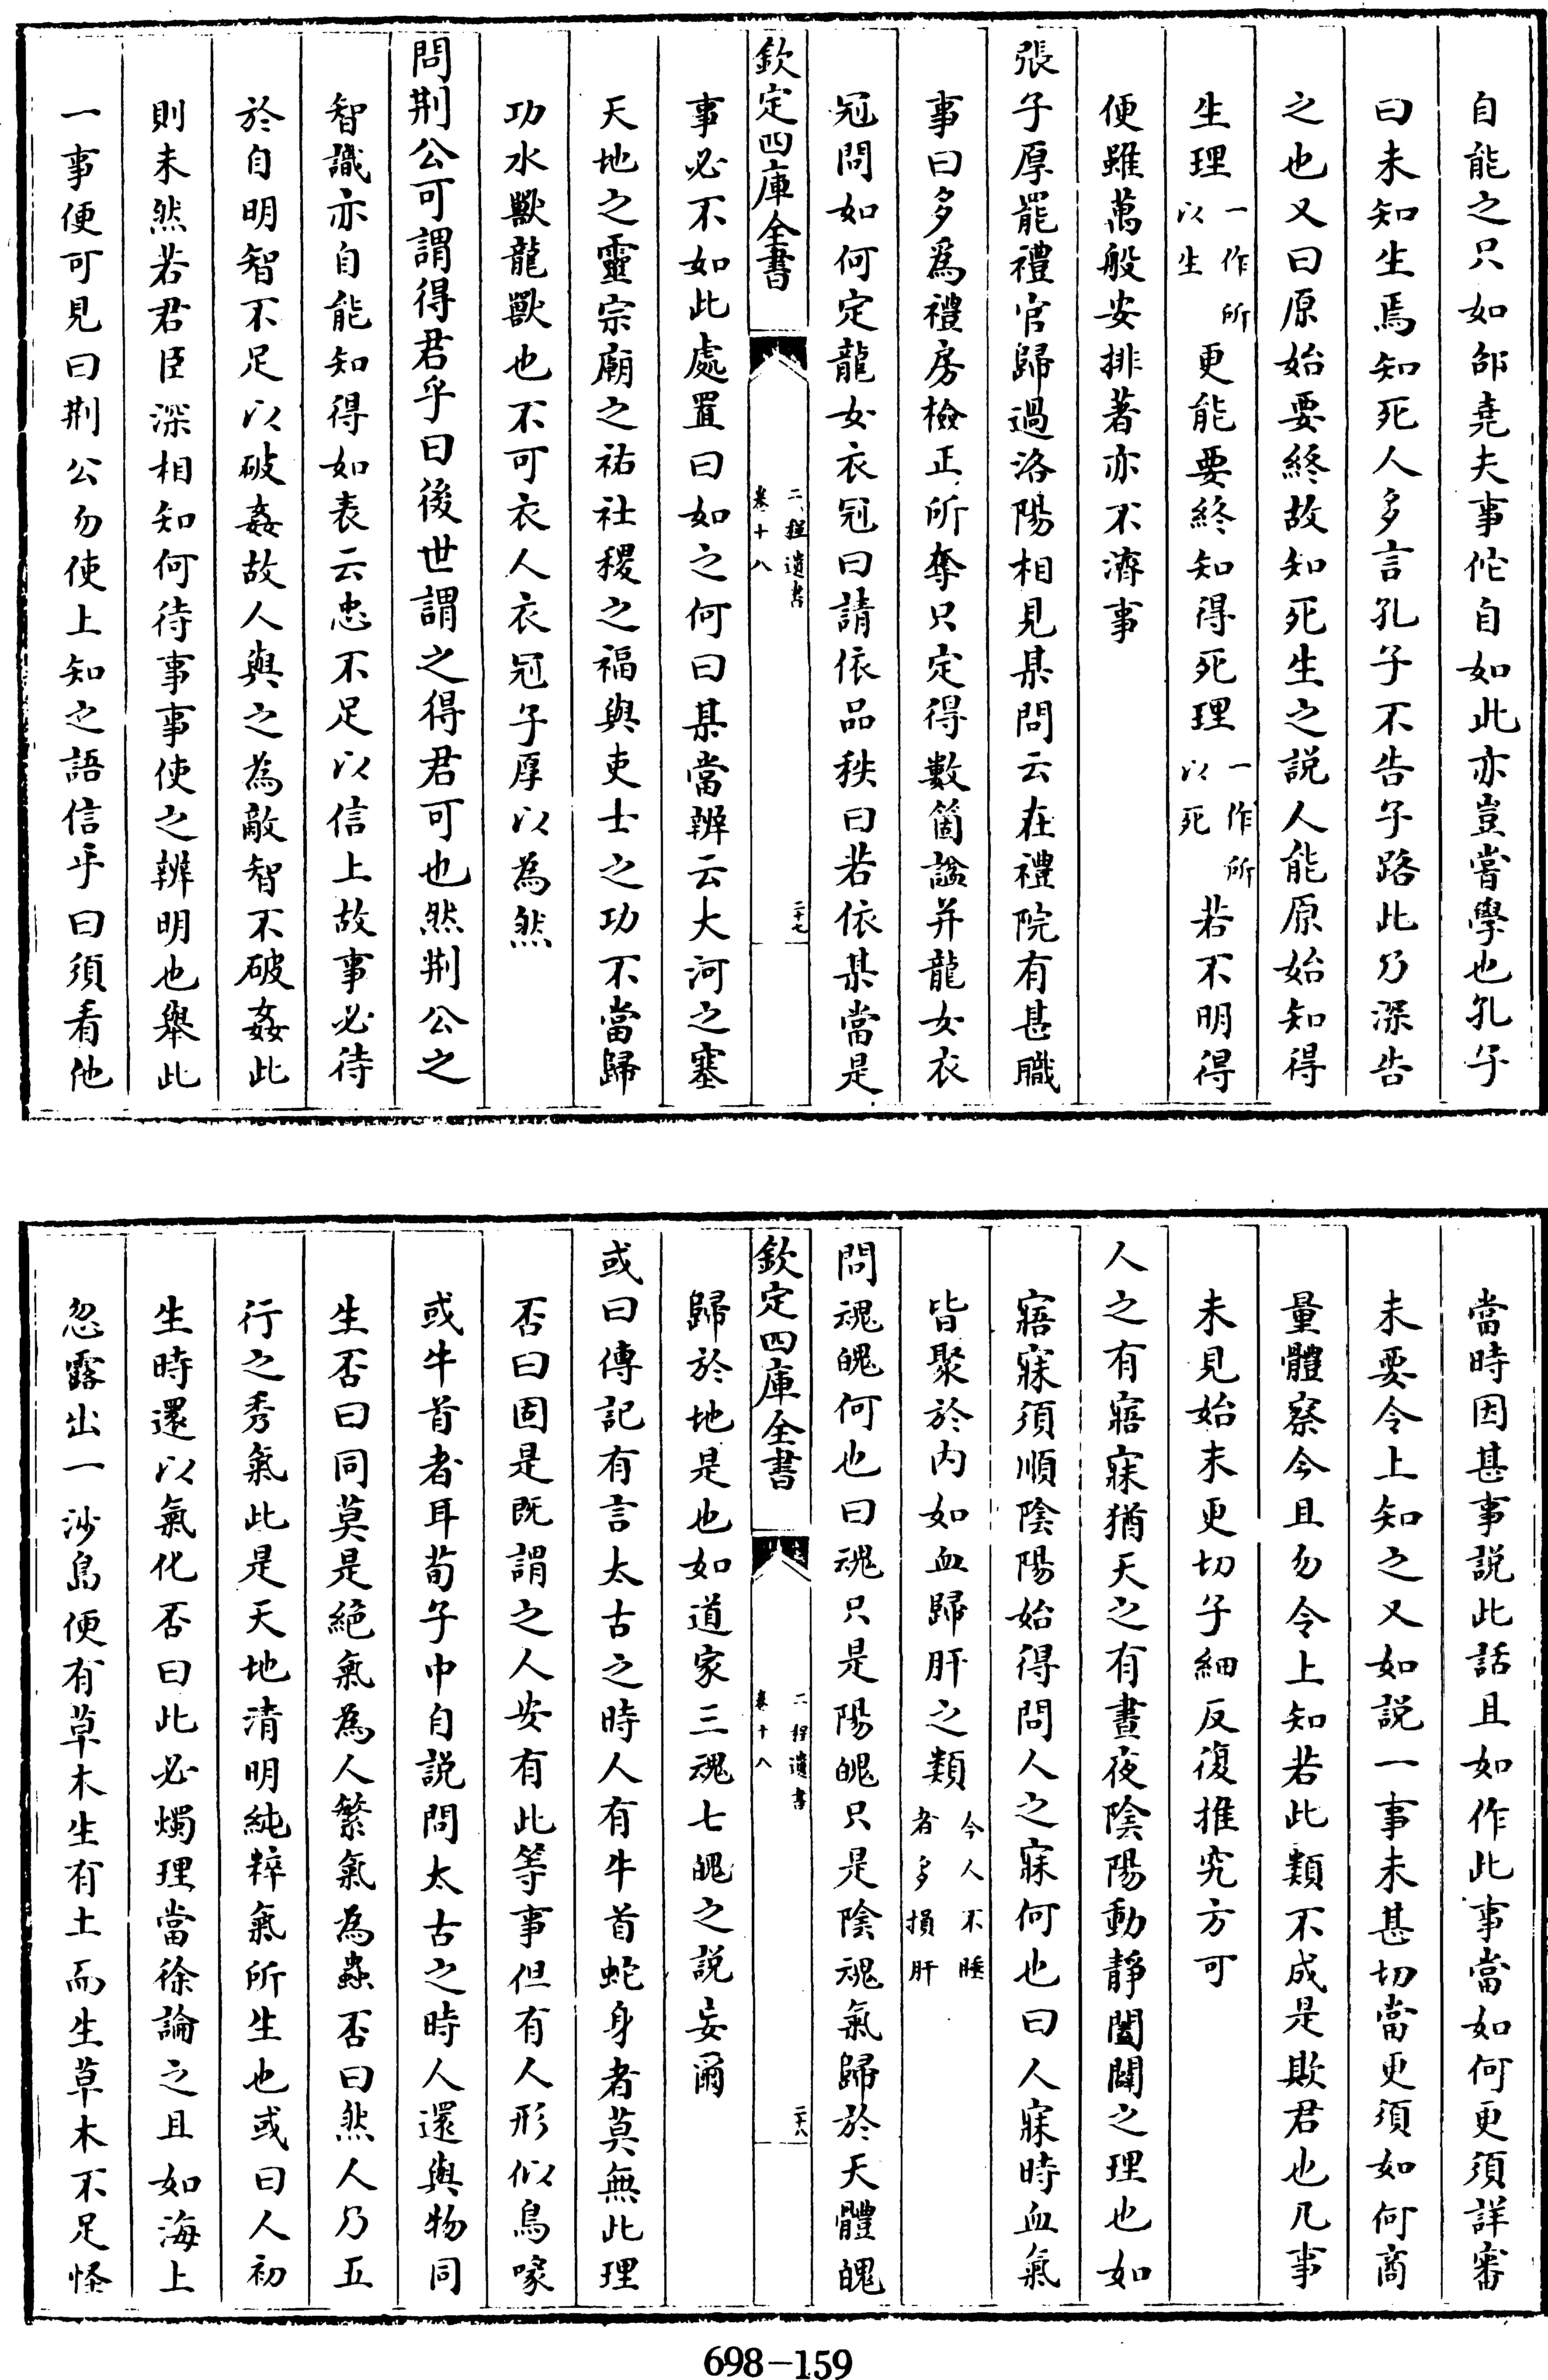 自能之只如邵堯夫事佗自如此亦豈嘗學也孔子
曰未知生焉知死人多言孔子不告子路此乃深告
之也又曰原始要終故知死生之説人能原始知得
生理一作所以生更能要終知得死理一作所以死若不明得
便雖萬般安排著亦不濟事
張子厚罷禮官歸過洛陽相見某問云在禮院有甚職
事曰多爲禮房檢正所奪只定得數箇諡并龍女衣
冠問如何定龍女衣冠曰請依品秩曰若依某當是
欽定四庫全書
二程遺書
卷十八
二十七
事必不如此處置曰如之何曰某當辨云大河之塞
天地之靈宗廟之祐社稷之福與吏士之功不當歸
功水獸龍獸也不可衣人衣冠子厚以為然
問荆公可謂得君乎曰後世謂之得君可也然荆公之
智識亦自能知得如表云忠不足以信上故事必待
於自明智不足以破姦故人與之為敵智不破姦此
則未然若君臣深相知何待事事使之辨明也舉此
一事便可見曰荆公勿使上知之語信乎曰須看他
當時因甚事説此話且如作此事當如何更須詳審
未要令上知之又如説一事未甚切當更須如何商
量體察今且勿令上知若此類不成是欺君也凡事
未見始末更切子細反復推究方可
人之有寤寐猶天之有晝夜陰陽動靜闔闢之理也如
寤寐須順陰陽始得問人之寐何也曰人寐時血氣
皆聚於内如血歸肝之類今人不睡者多損肝
問魂魄何也曰魂只是陽魄只是陰魂氣歸於天體魄
欽定四庫全書
二程遺書
卷十八
二十八
歸於地是也如道家三魂七魄之説妄爾
或曰傳記有言太古之時人有牛首蛇身者莫無此理
否曰固是既謂之人安有此等事但有人形似鳥喙
或牛首者耳荀子中自説問太古之時人還與物同
生否曰同莫是絶氣為人繁氣為蟲否曰然人乃五
行之秀氣此是天地清明純粹氣所生也或曰人初
生時還以氣化否曰此必燭理當徐論之且如海上
忽露出一沙島便有草木生有土而生草木不足怪
698-159